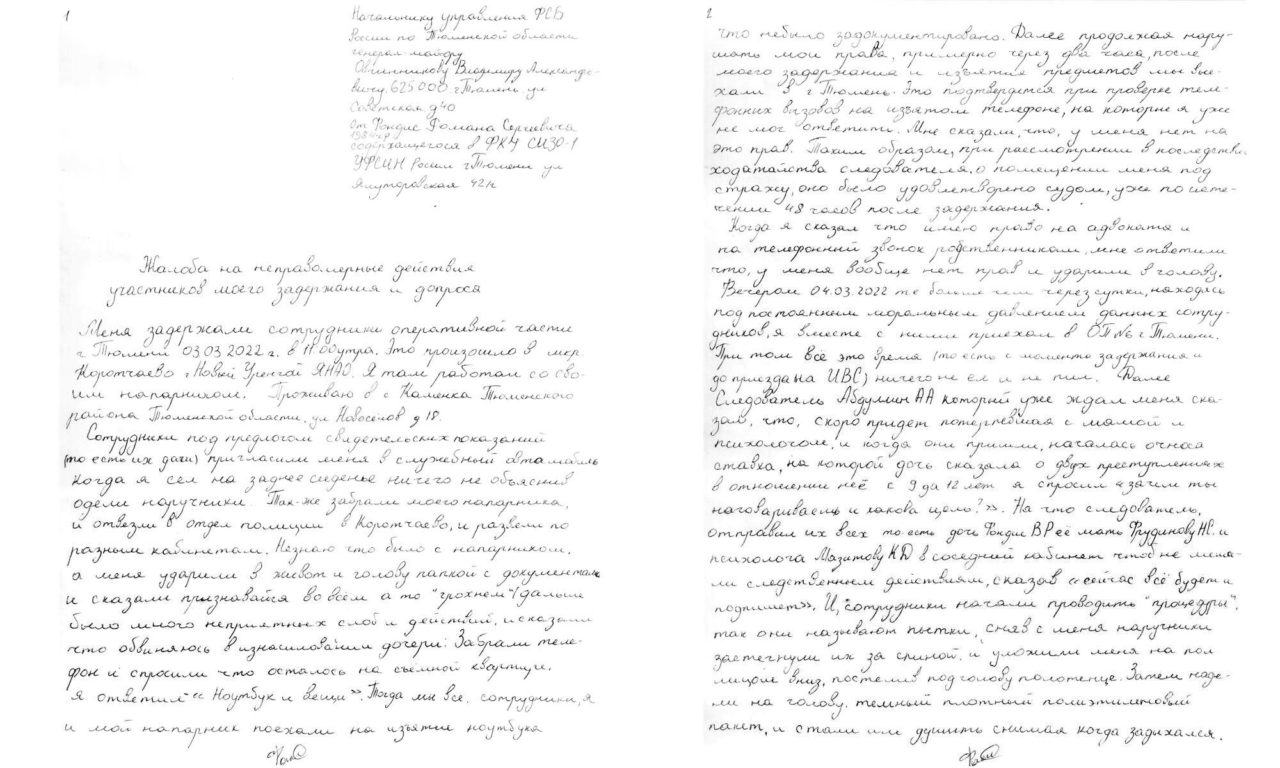 1
Начальнику управления ФСБ
России по Тюменской области
генерал майору
Овчинникову Владимиру Александро-
вичу. 625000 г Тюмень ул
Советская д 40
от Фондие Романа Сергеевича
содержащегося в ФКУ СИЗО-1
УФСИН России г Тюмени ул
Ялуторовская 42
Жалоба на неправомерные действия
участников моего задержания и допроса
Меня задержали сотрудники оперативной части
г Тюмени 03.03.2022 г. в 11:00 утра. Это произошло в мкр.
Коротчаево г Новый Уренгой ЯНАО. Я там работал со сво-
им напарником. Проживаю в с Каменка Тюменского
района Тюменской области, ул Новоселов д 18.
Сотрудники под предлогом свидетельских показаний
(то есть их дачи) пригласили меня в служебный автомабиль
Когда я сел на заднее сиденье ничего не объяснив
одели наручники. Так-же забрали моего напарника,
и отвезли в отдел полиции в Коротчаево, и развели по
разным кабинетам. Незнаю что было с напарником,
а меня ударили в живот и голову папкой с документами
и сказали признавайся во всём а то "грохнем" (дальше
было много неприятных слов и действий, и сказали
что обвиняюсь в изнасиловании дочери. Забрали теле-
фон и спросили что осталось на съёмной квартире,
я ответил "Ноутбук и вещи". Тогда мы все, сотрудники, я
и мой напарник поехали на изъятие ноутбука
2
что небыло задокументировано. Далее продолжая нару-
шать мои права, примерно через два часа, после
моего задержания и изъятия предметов мы вые-
хали в г Тюмень. Это подтвердится при проверке теле-
фонных вызовов на изъятом телефоне, на которые я уже
не мог ответить. Мне сказали, что, у меня нет на
это прав. Таким образом, при рассмотрении в последствии
ходатайства следователя, о помещении меня под
стражу, оно было удовлетворено судом, уже по исте-
чении 48 часов после задержания.
Когда я сказал что имею право на адвоката и
на телефонный звонок родственникам, мне ответили
что, у меня вообще нет прав и ударили в голову.
Вечером 04.03.2022 те больше чем через сутки, находясь
под постоянным моральным давлением данных сотру-
дников, я вместе с ними приехал в ОП №6 г Тюмени.
При том всё это время (то есть с момента задержания и
до приезда на ИВС) ничего не ел и не пил. Далее
Следователь Абдуллин АА который уже ждал меня ска-
зал, что, скоро придет потерпевшая с мамой и
психологом, и когда они пришли, началась очная
ставка, на которой дочь сказала о двух преступлениях
в отношении неё с 9 до 12 лет я спросил "зачем ты
наговариваешь и какова цель?». На что следователь,
отправил их всех то есть дочь Фондие ВР её мать Фрудинову НС. и
психолога Мазитову КД в соседний кабинет чтоб не меша-
ли следственным действиям, сказав «сейчас всё будет и
подпишет». И, сотрудники начали проводить "процедуры",
так они называют пытки, сняв с меня наручники
застегнули их за спиной, и уложили меня на пол
лицом вниз, постелив под голову полотенце. Затем наде-
ли на голову, темный плотный полиэтиленовый
пакет, и стали им душить снимая когда задыхался.